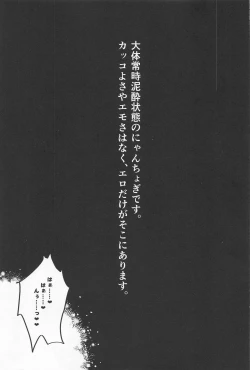 大体常時泥酔状態のにゃんちょぎです。
カッコよさやエモさはなく、エロだけがそこにあります。
はぁ……♥
はぁ……♥
んぅ……っ♥